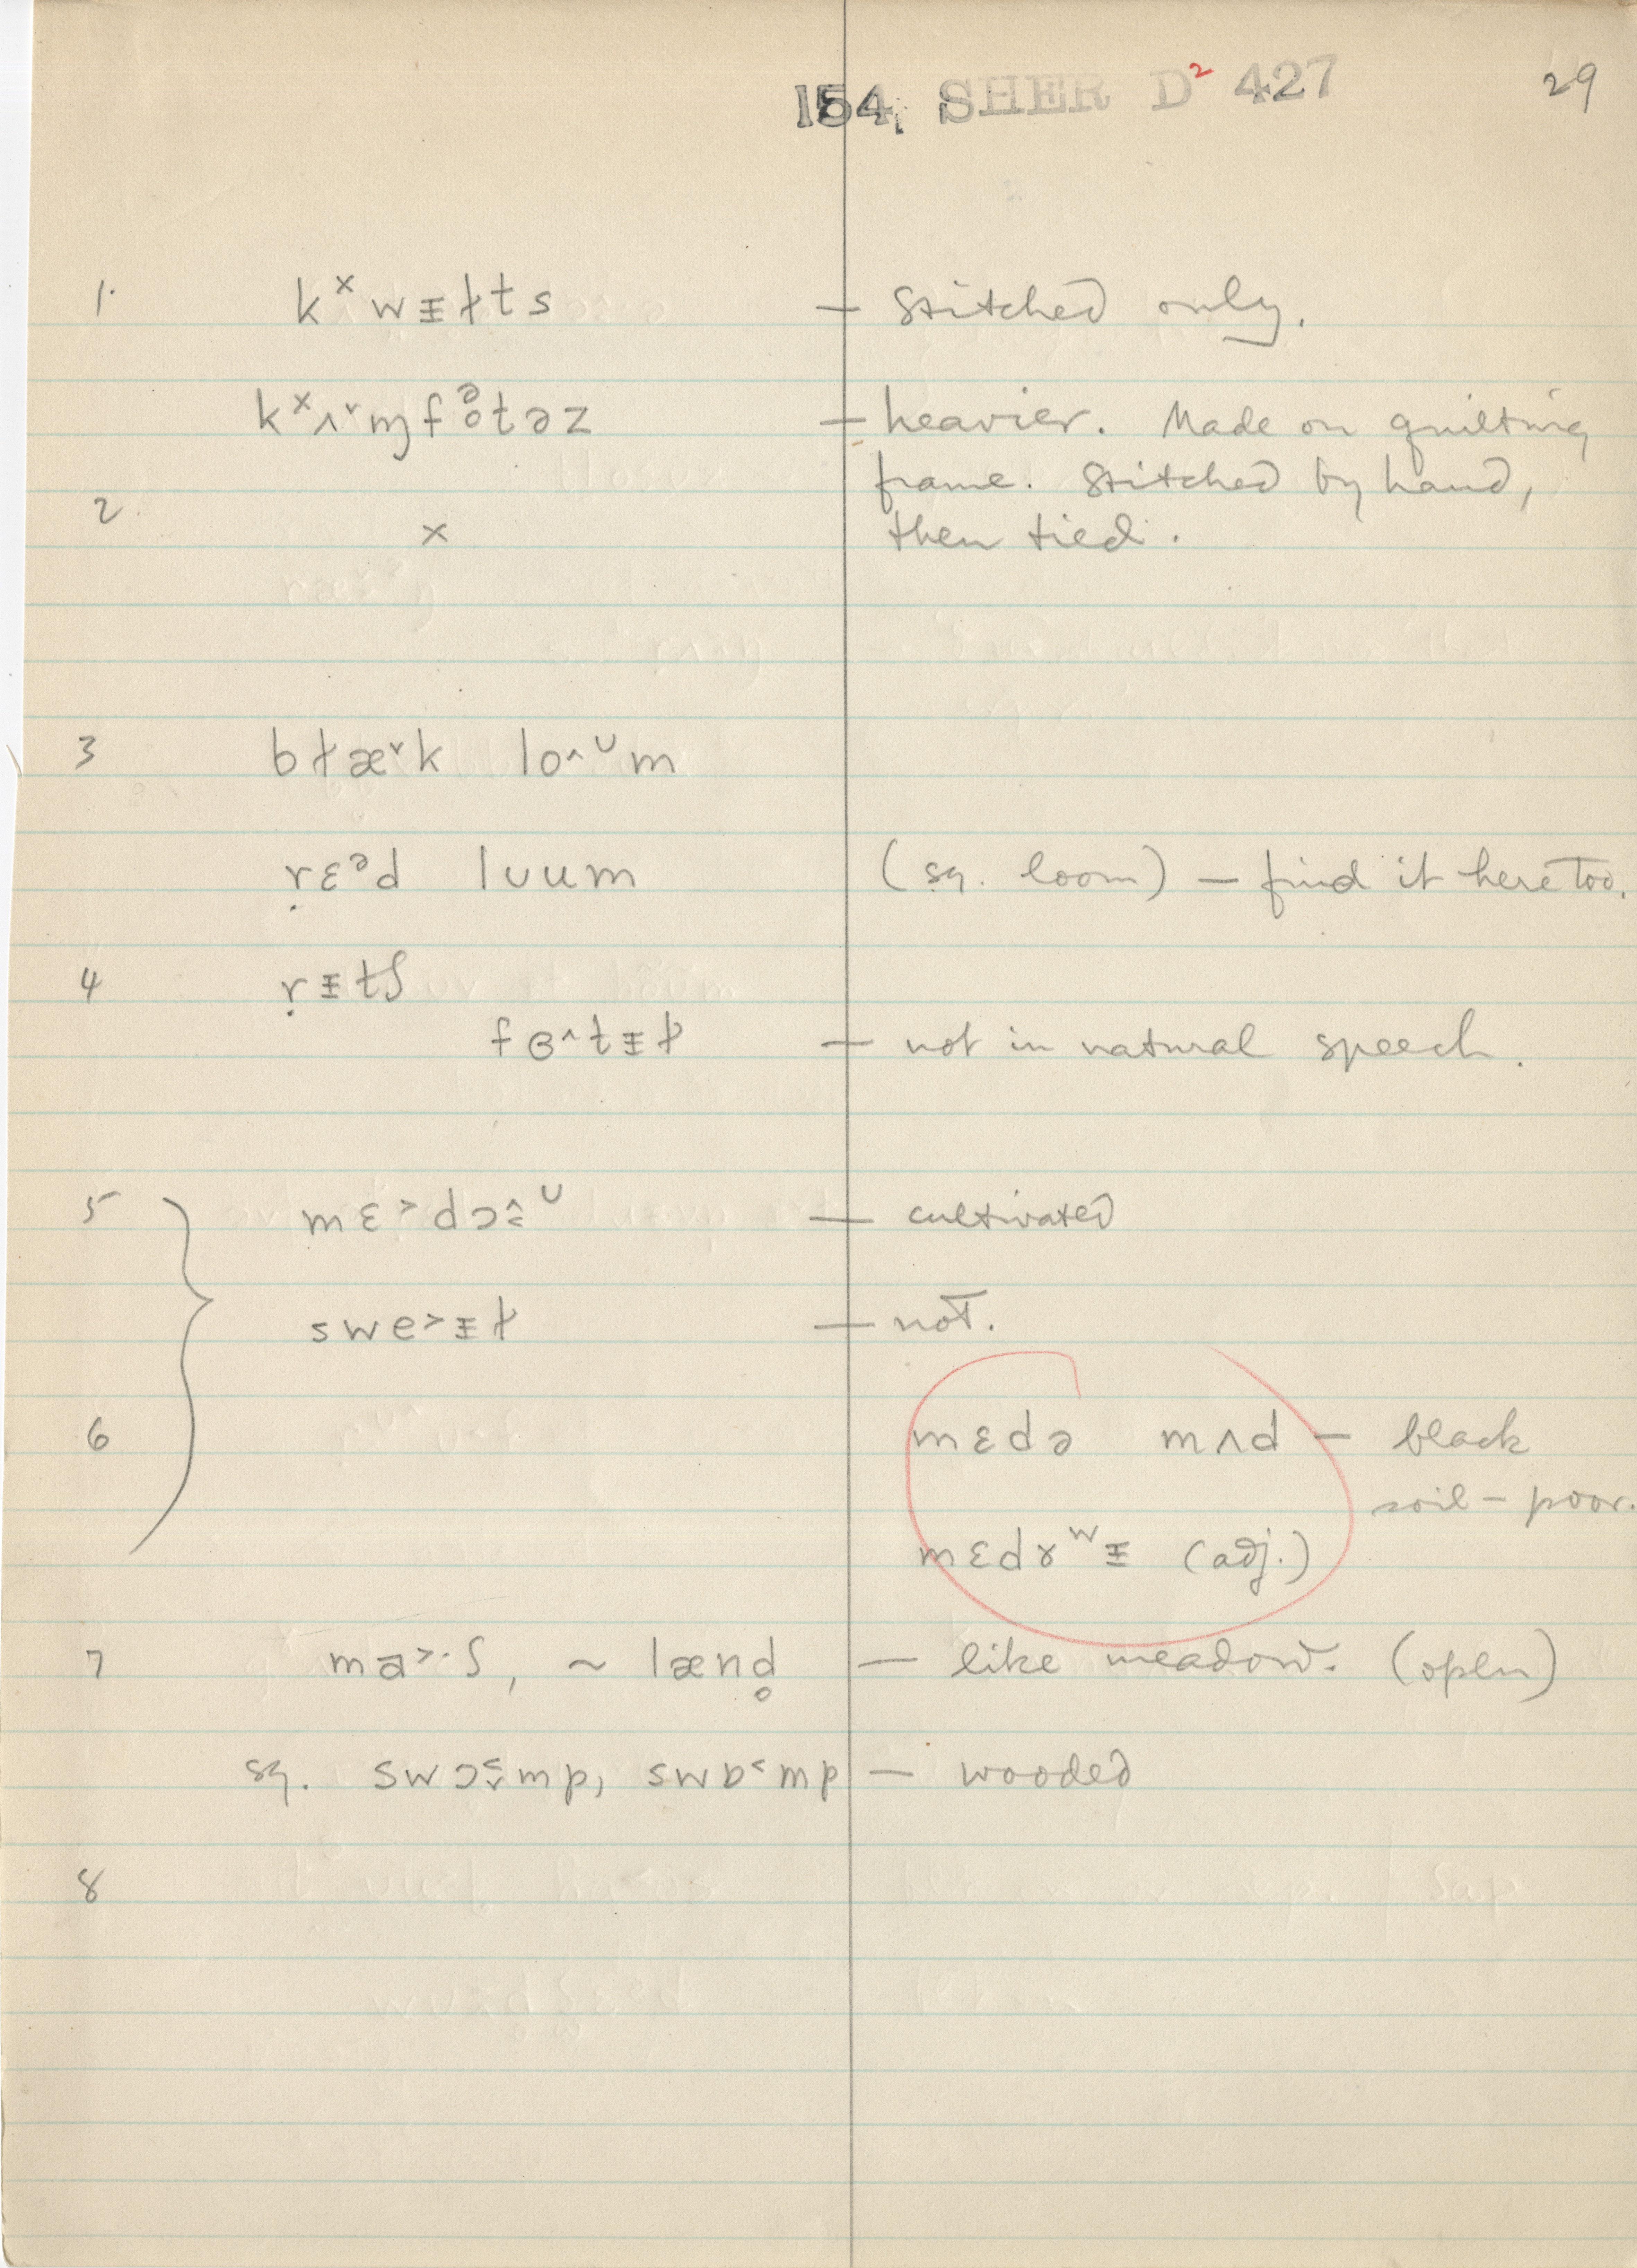 154. SHER D² 427 29
1. kˣwᵻɫts — stitched only.
kˣʌ˅ɱfə̥təz — heavier. Made on quilting
frame. Stitched by hand,
2. × then tied.
3 bɫæ˅k lo^ᴜm
ṛɛᵊd lᴜum (sq. loom) — find it here too.
4 ṛᵻtʃ
fɵ^tᵻɫ — not in natural speech.
5 mɛ˃dɔ^ᴜ — cultivated
swe˃ᵻɫ — not.
6 mɛdə mʌd — black
soil — poor.
mɛdɤʷᵻ (adj.)
7 ma˃·ʃ, ~ lænd̥ — like meadow. (open)
sq. swɔ˂˅mp, swɒ˂mp — wooded
8